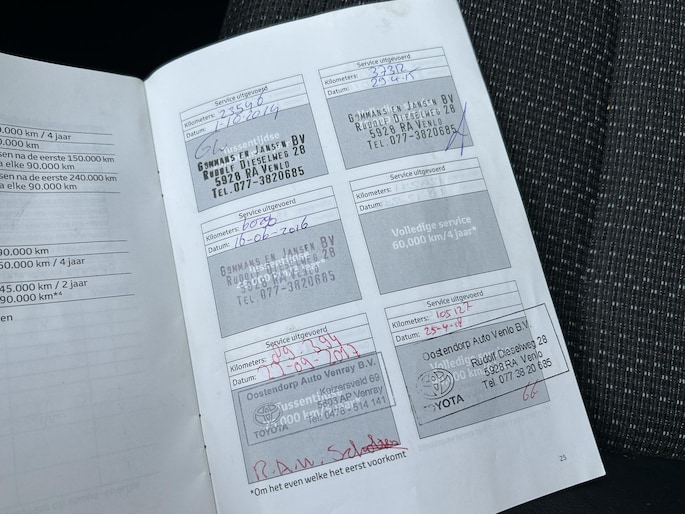 0.000 km / 4 jaar
0.000 km
sen na de eerste 150.000 km
a elke 90.000 km
sen na de eerste 240.000 km
a elke 90.000 km
90.000 km
50.000 km / 4 jaar
45.000 km / 2 jaar
90.000 km*⁴
en
Service uitgevoerd
Kilometers: 23540
Datum: 1-10-2014
Tussentijdse
GOMMANS EN JANSEN BV
RUDOLF DIESELWEG 28
5928 RA VENLO
TEL. 077-3820685
Service uitgevoerd
Kilometers: 37312
Datum: 29-4-15
GOMMANS EN JANSEN BV
RUDOLF DIESELWEG 28
5928 RA VENLO
TEL. 077-3820685
Service uitgevoerd
Kilometers:
Datum: 16-06-2016
GOMMANS EN JANSEN BV
RUDOLF DIESELWEG 28
5928 RA VENLO
TEL. 077-3820685
Service uitgevoerd
Kilometers:
Datum:
Volledige service
60.000 km/4 jaar*
Service uitgevoerd
Kilometers: 89.394
Datum: 22-09-2017
Oostendorp Auto Venray B.V.
Tussentijdse
Keizersveld 69
5803 AP Venray
Tel. 0478 - 514 141
TOYOTA
Service uitgevoerd
Kilometers: 105127
Datum: 25-4-18
Oostendorp Auto Venlo B.V.
Rudolf Dieselweg 28
5928 RA Venlo
Tel. 077 38 20 685
TOYOTA
*Om het even welke het eerst voorkomt
25